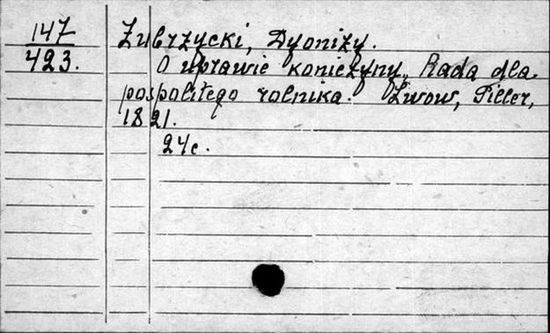 147
423.
Zubrzycki, Dyonizy.
O uprawie koniczyny. Rada dla
pospolitego rolnika. Lwow, Piller,
1821.
24c.